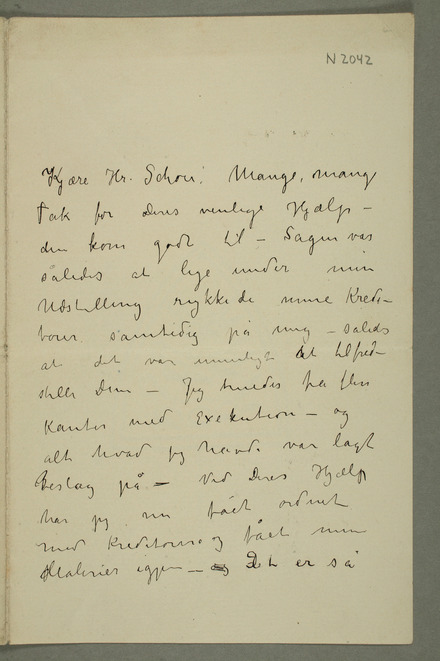 N 2042
Kjære Hr. Schou! Mange, mang
Tak for Deres venlige Hjælp –
den kom godt til – Sagen var
således at lige under min
Udstilling rykkede mine Kredi-
torer samtidig på mig – således
at det var umuligt at tilfred-
stille Dem – Jeg truedes fra flere
Kanter med Exekution – og
alt hvad jeg havde var lagt
Beslag på – Ved Deres Hjælp
har jeg nu fået ordnet
med Kreditorene og fået mine
Malerier igjen – Det er så